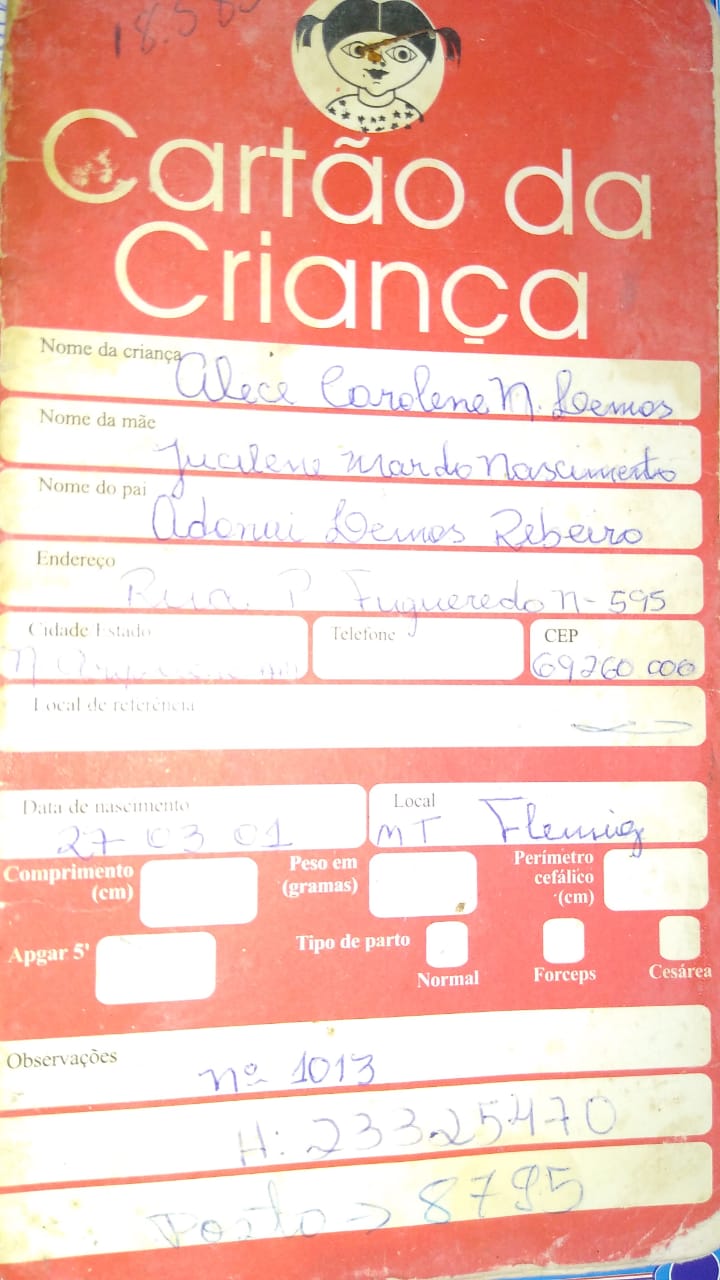 18.5
Cartão da
Criança
Nome da criança
Alece Carolene N. Lemos
Nome da mãe
Jucilene Mar do Nascimento
Nome do pai
Adonui Lemos Rebeiro
Endereço
Rua P Fugueredo N- 595
Cidade Estado Telefone CEP
N 69260 000
Local de referência
Data de nascimento Local
27 03 01 MT Flemig
Comprimento (cm) Peso em (gramas) Perímetro cefálico (cm)
Apgar 5' Tipo de parto
Normal Forceps Cesárea
Observações
nº 1013
H: 23325470
Posto -> 8795